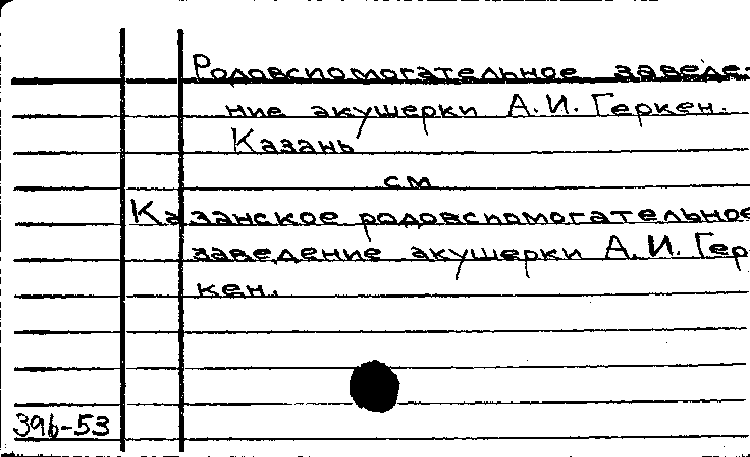 Родовспомогательное заведе-
ние акушерки А.И. Геркен.
Казань
см
Казанское родовспомогательное
заведение акушерки А.И. Гер
кен.
396-53